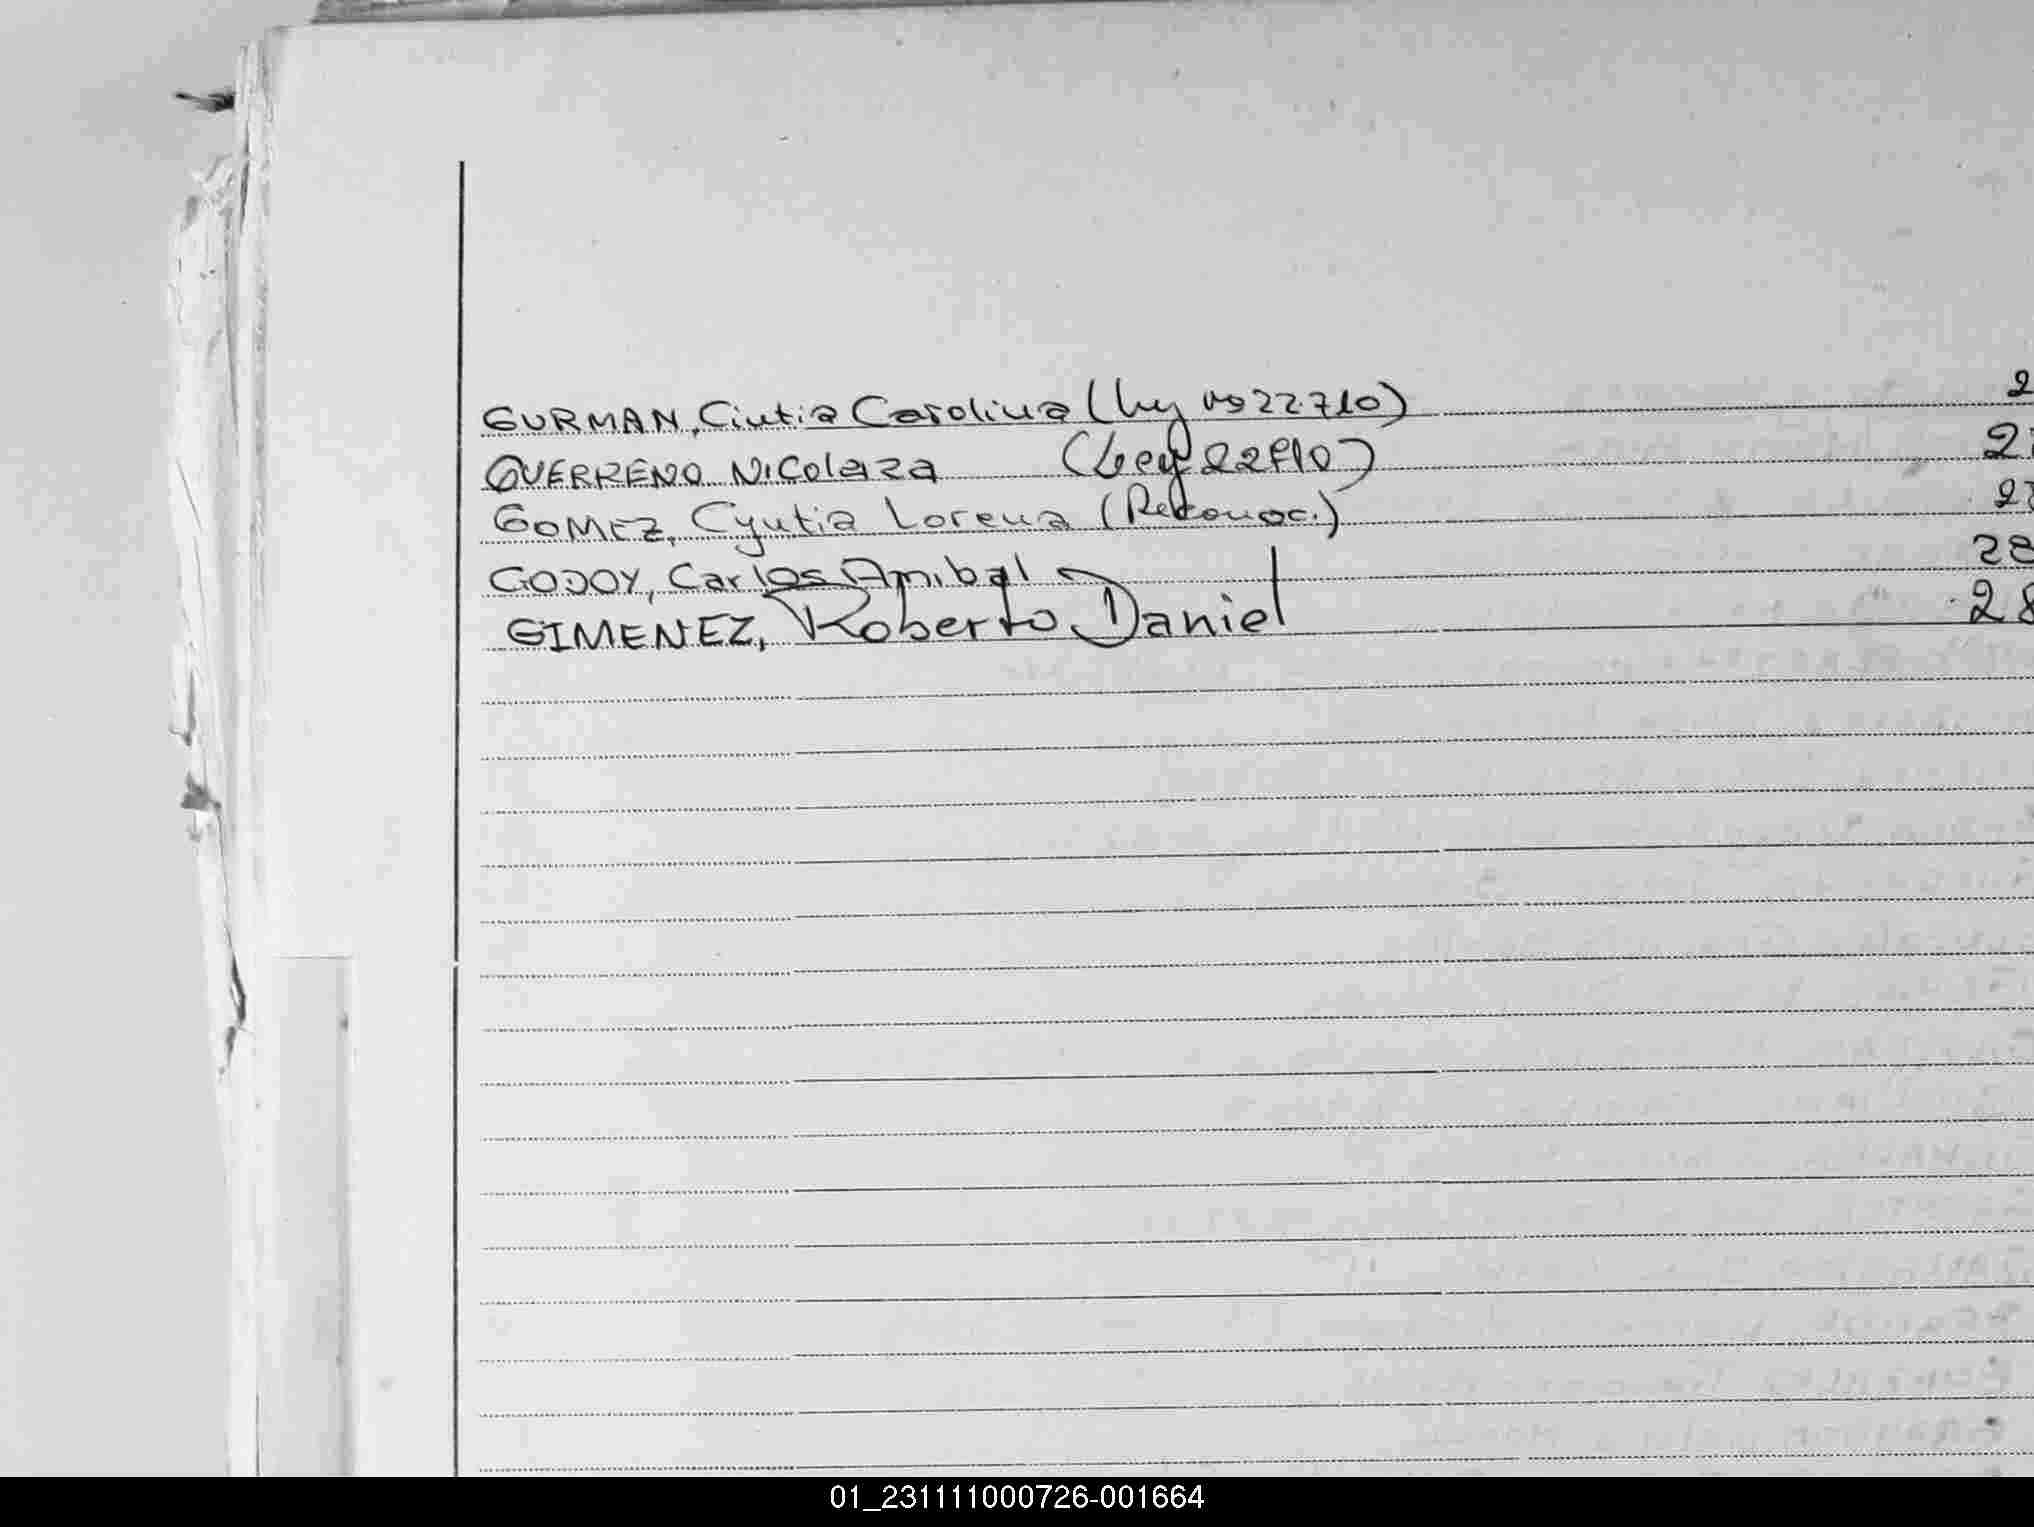 GURMAN, Cintia Carolina (Ley nº 22.710) 2
GUERRENO NICOLAZA (Ley 22810) 2
GOMEZ, Cyntia Lorena (Reconoc.) 27
GODOY, Carlos Anibal 28
GIMENEZ, Roberto Daniel 28
01_231111000726-001664